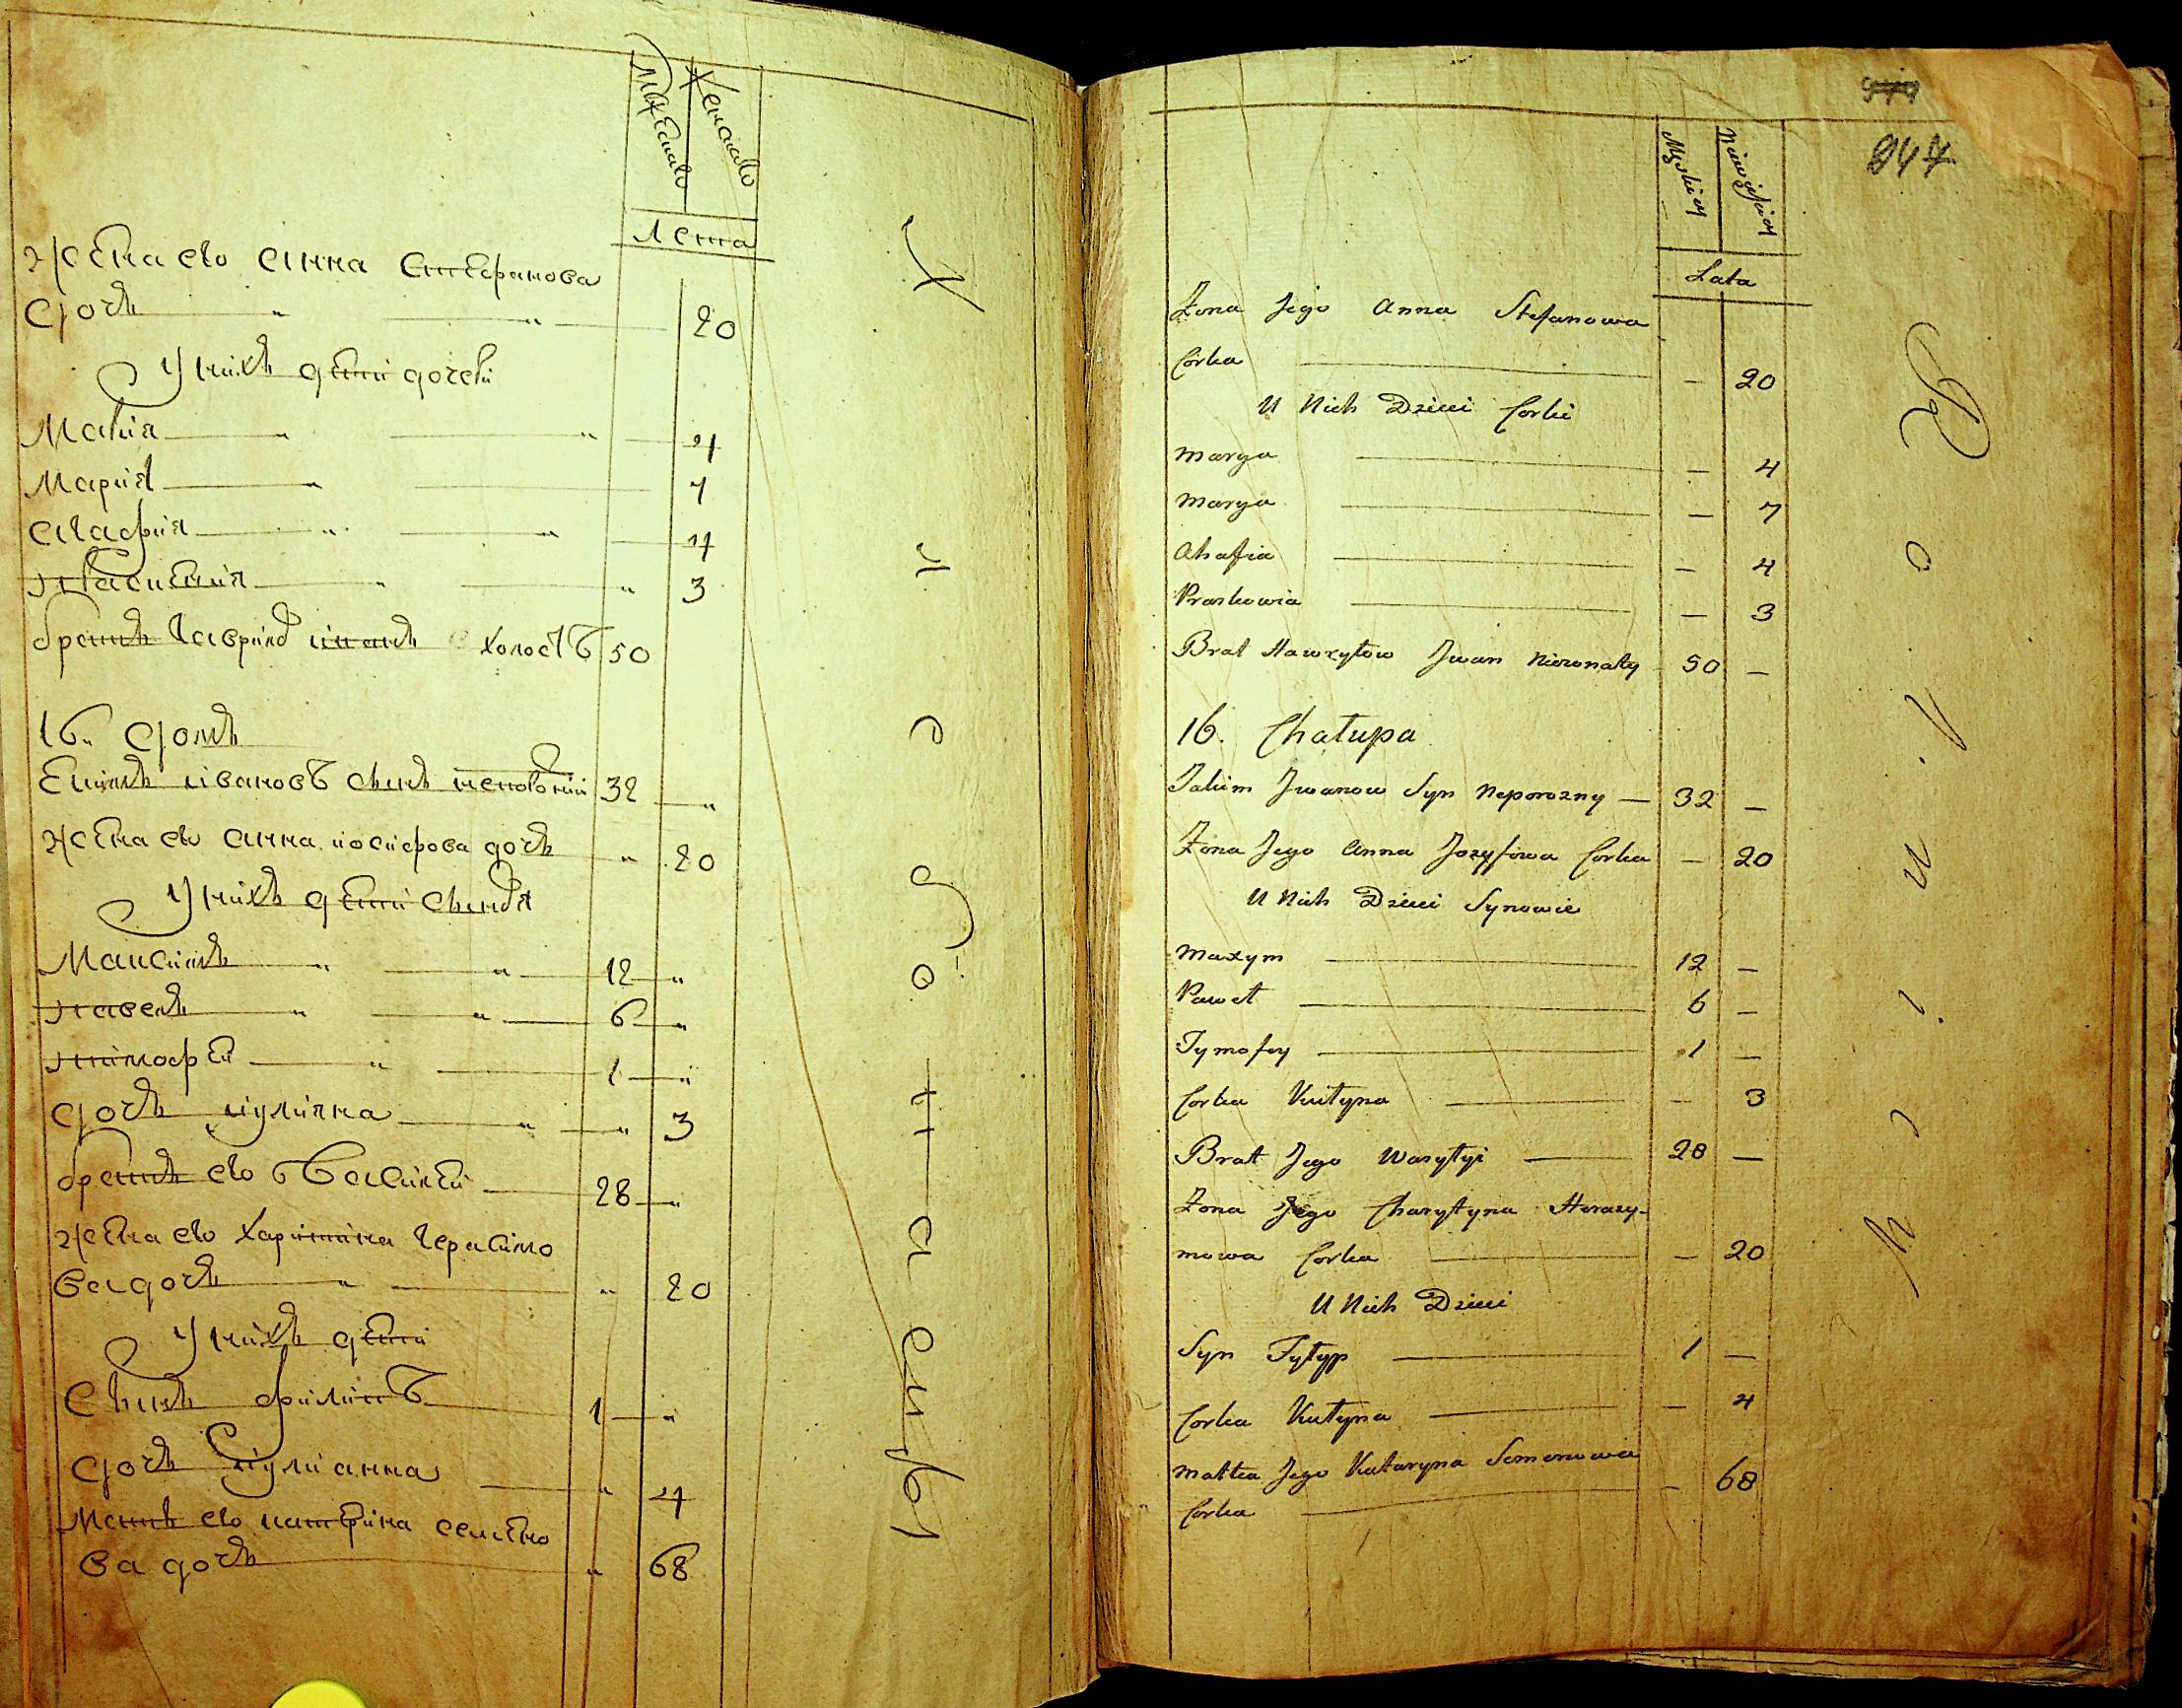 Мужеска Женска
Лета
Жена его анна Стефанова
дочь 20
У нихъ дети дочери
Мария 4
Мария 7
агафия 4
Параскевия 3
братъ гаврилов иванъ холостъ 50
16. домъ
Екимъ ивановъ сынъ непорожний 32
Жена его анна иосифова дочь 20
У нихъ дети сыновя
Максимъ 12
павелъ 6
тимофей 1
дочь иулияна 3
братъ его василей 28
Жена его харитина герасимо
ва дочь 20
У нихъ дети
Сынъ филипъ 1
дочь иулианна 4
Мать его катерина семено
ва дочь 68
Хлебороботаеми
947
Męskiey Niewieściey
Lata
Żona Jego Anna Stefanowa
Corka — 20
U Nich Dzieci Corki
Marya — 4
Marya — 7
Ahafia — 4
Praskowia — 3
Brat Hawryłow Jwan Nieżonaty 50 —
16. Chałupa
Jakim Jwanow Syn Neporozny — 32 —
Żona Jego Anna Jozyfowa Corka — 20
U Nich Dzieci Synowie
Maxym 12 —
Paweł 6 —
Tymofey 1 —
Corka Kulyna — 3
Brat Jego Wasylyi 28 —
Żona Jego Charytyna Herasy-
mowa Corka — 20
U Nich Dzieci
Syn Fylyp 1 —
Corka Kulyna — 4
Matka Jego Kataryna Semenowa
Corka — 68
Rolnicy